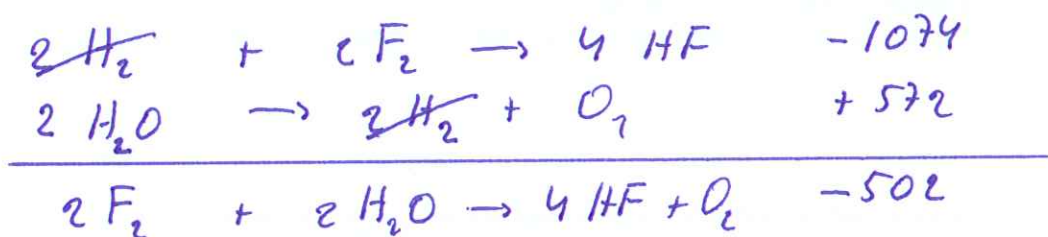 2 H₂ + 2 F₂ → 4 HF -1074
2 H₂O → 2 H₂ + O₂ + 572
2 F₂ + 2 H₂O → 4 HF + O₂ -502